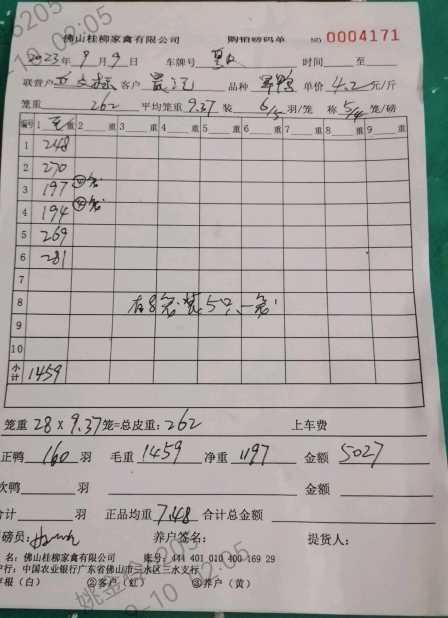 佛山桂柳家禽有限公司 购销磅码单 NO 0004171
2023年9月9日 车牌号 时间 至
联营户 客户 品种 单价 4.2 元/斤
笼重 262 平均笼重 9.37 装 6/5 羽/笼 称 5/4 笼/磅
编号 1 毛 重 2 重 3 重 4 重 5 重 6 重 7 重 8 重 9 重
1 248
2 270
3 197
4 194
5 269
6 281
7
8 有8笼装5只一笼
9
10
小计 1459
笼重 28 X 9.37 笼=总皮重: 262 上车费
正鸭 160 羽 毛重 1459 净重 1197 金额 5027
次鸭 羽 金额
合计 羽 正品均重 7.48 合计总金额
磅员: 养户签名: 提货人:
名: 佛山桂柳家禽有限公司 账号: 444 401 010 400 169 29
行: 中国农业银行广东省佛山市三水区三水支行
存根(白) ②客户(红) ③养户(黄)